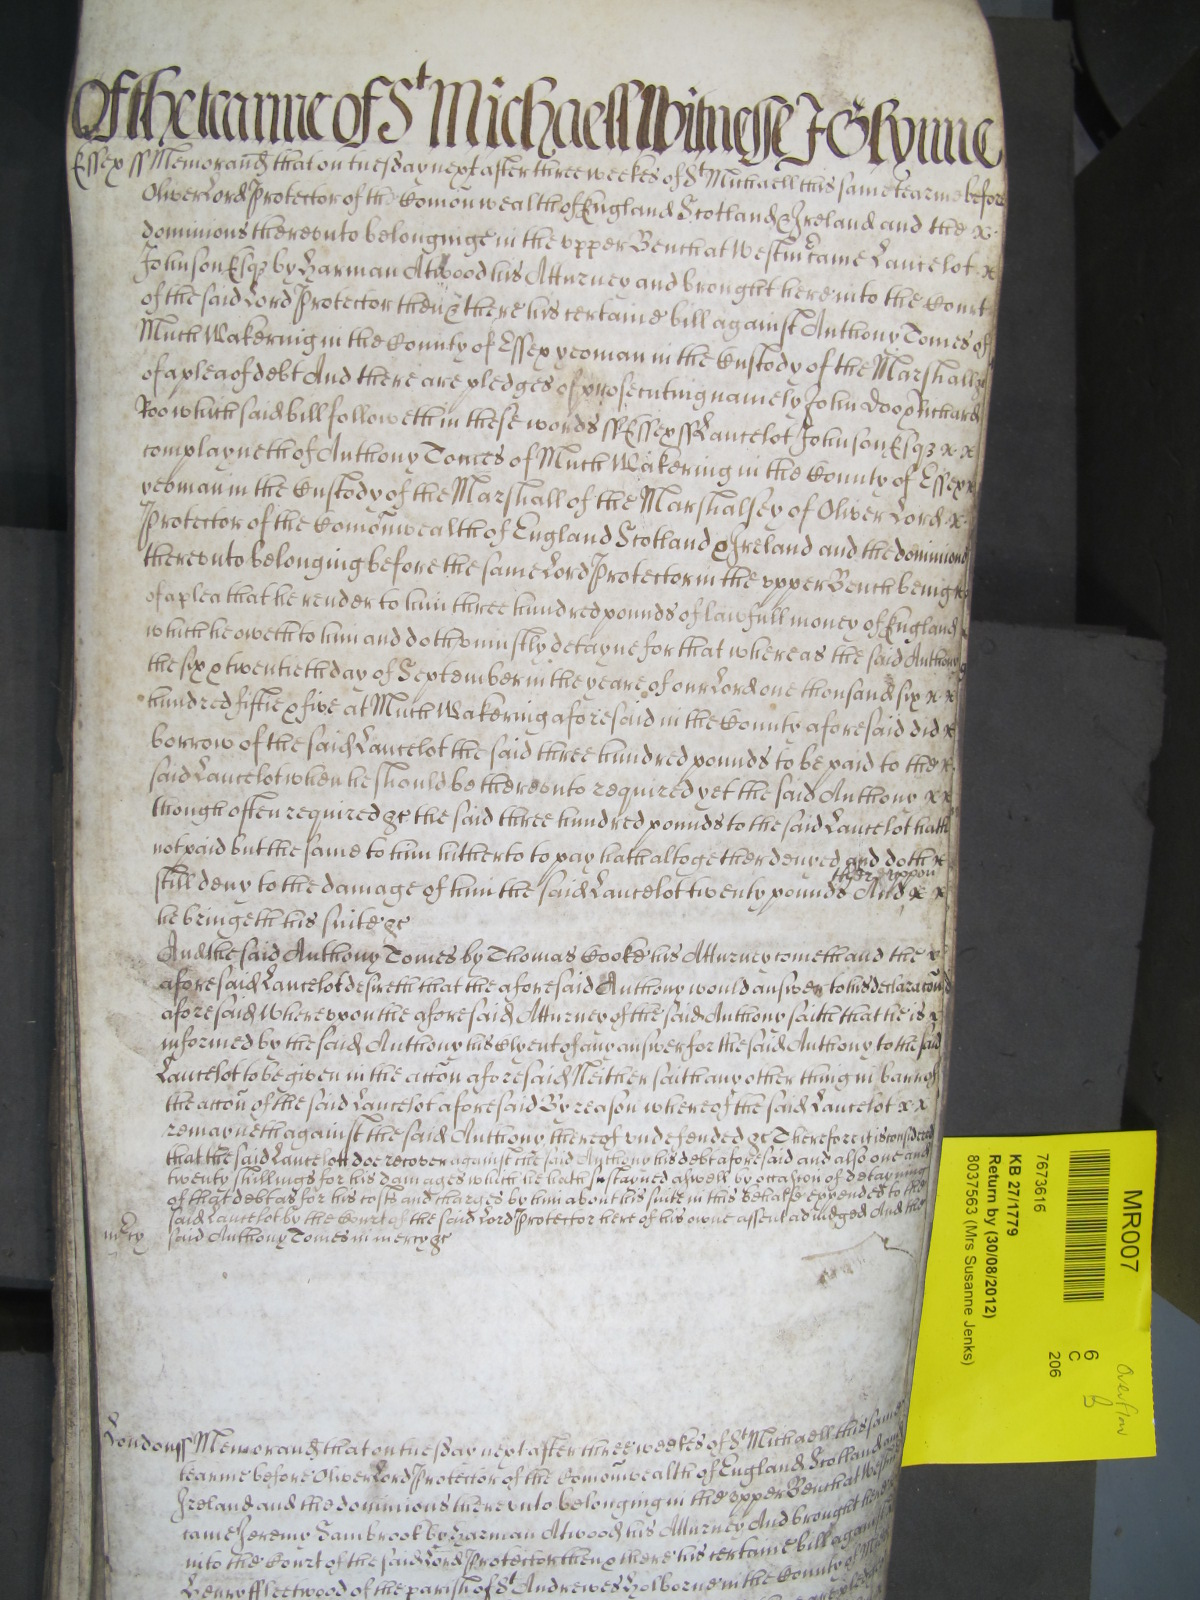 Of the tearme of St Michaell Witnesse J Glynne
Essex ss Memorand that on tuesday next after three weekes of St Michaell this same tearme before
Oliver Lord Protector of the Comonwealth of England Scotland & Ireland and the x
dominions thereunto belonginge in the upper Bench at Westm came Lancelot x
Johnson Esqz by Harman Atwood his Atturney and brought here into the Court
of the said Lord Protector then & there his certaine bill against Anthony Tomes of
Much Wakering in the County of Essex yeoman in the Custody of the Marshall &c
of a plea of debt And there are pledges of prosecuting namely John Doo & Richard
Roo which said bill followeth in these words ss Essex ss Lancelot Johnson Esqz x x
complayneth of Anthony Tomes of Much Wakering in the County of Essex x
yeoman in the Custody of the Marshall of the Marshalsey of Oliver Lord x
Protector of the Comonwealth of England Scotland & Ireland and the dominions
thereunto belonging before the same Lord Protector in the upper Bench being x
of a plea that he render to him three hundred pounds of lawfull money of England x
which he oweth to him and doth uniustly detayne for that whereas the said Anthony
the six & twentieth day of September in the yeare of our Lord one thousand six x x
hundred fiftie & five at Much Wakering aforesaid in the County aforesaid did x
borrow of the said Lancelot the said three hundred pounds to be paid to the x
said Lancelot when he should be thereunto required yet the said Anthony x x
though often required &c the said three hundred pounds to the said Lancelot hath
not paid but the same to him hitherto to pay hath altogether denyed and doth x
thereuppon
still deny to the damage of him the said Lancelot twenty pounds And x x
he bringeth his suite &c
And the said Anthony Tomes by Thomas Cooke his Atturney cometh and the x
aforesaid Lancelot desireth that the aforesaid Anthony would answer to his declaracon
aforesaid Whereupon the aforesaid Atturney of the said Anthony saith that he is x
informed by the said Anthony his Clyent of any answer for the said Anthony to the said
Lancelot to be given in the accon aforesaid Neither saith any other thing in barr of
the accon of the said Lancelot aforesaid By reason whereof the said Lancelot x x
remayneth against the said Anthony thereof undefended &c Therefore it is considered
that the said Lancelott doe recover against the said Anthony his debt aforesaid and also one and
twenty shillings for his damages which he hath sustayned aswell by occasion of detayning
of that debt as for his costs and charges by him about his suite in this behalfe expended to the
said Lancelot by the Court of the said Lord Protector here of his owne assent adiudged And the
mercy said Anthony Tomes in mercy &c
London ss Memorand that on tuesday next after three weekes of St Michaell this same
tearme before Oliver Lord Protector of the Comonwealth of England Scotland and
Ireland and the dominions thereunto belonging in the upper Bench at Westm
came Jeremy Sambrook by Harman Atwood his Atturney And brought here
into the Court of the said Lord Protector then & there his certaine bill against
Henry Fleetwood of the parish of St Andrewes Holborne in the County of
MR007
7673616
KB 27/1779
Return by (30/08/2012)
8037563 (Mrs Susanne Jenks)
6
C
206
Overflow
B